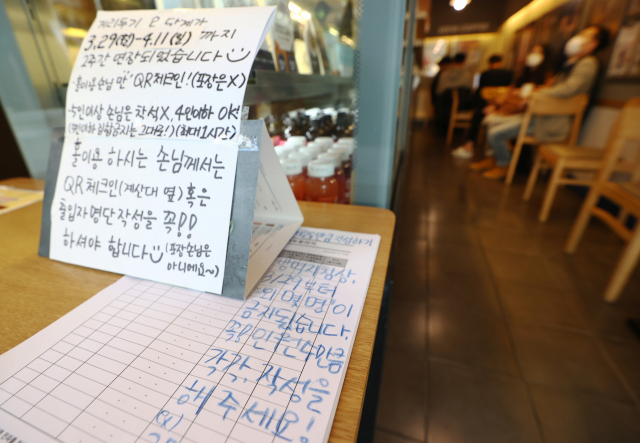 거리두기 2 단계가
3.29(월)-4.11(일) 까지
2주간 연장되었습니다
"홀이용 손님 만" QR체크인! (포장은X)
5인이상 손님은 착석X, 4인이하 OK!
(5인이하 집합금지는 그대로!) (최대1시간)
홀이용 하시는 손님께서는
QR체크인(계산대 옆) 혹은
출입자명단작성을 꼭!!
하셔야 합니다 (포장손님은
아니에요~)
3/29부터
"외 몇명"이
금지됩니다.
꼭! 인원수만큼
각각, 작성을
해주세요!